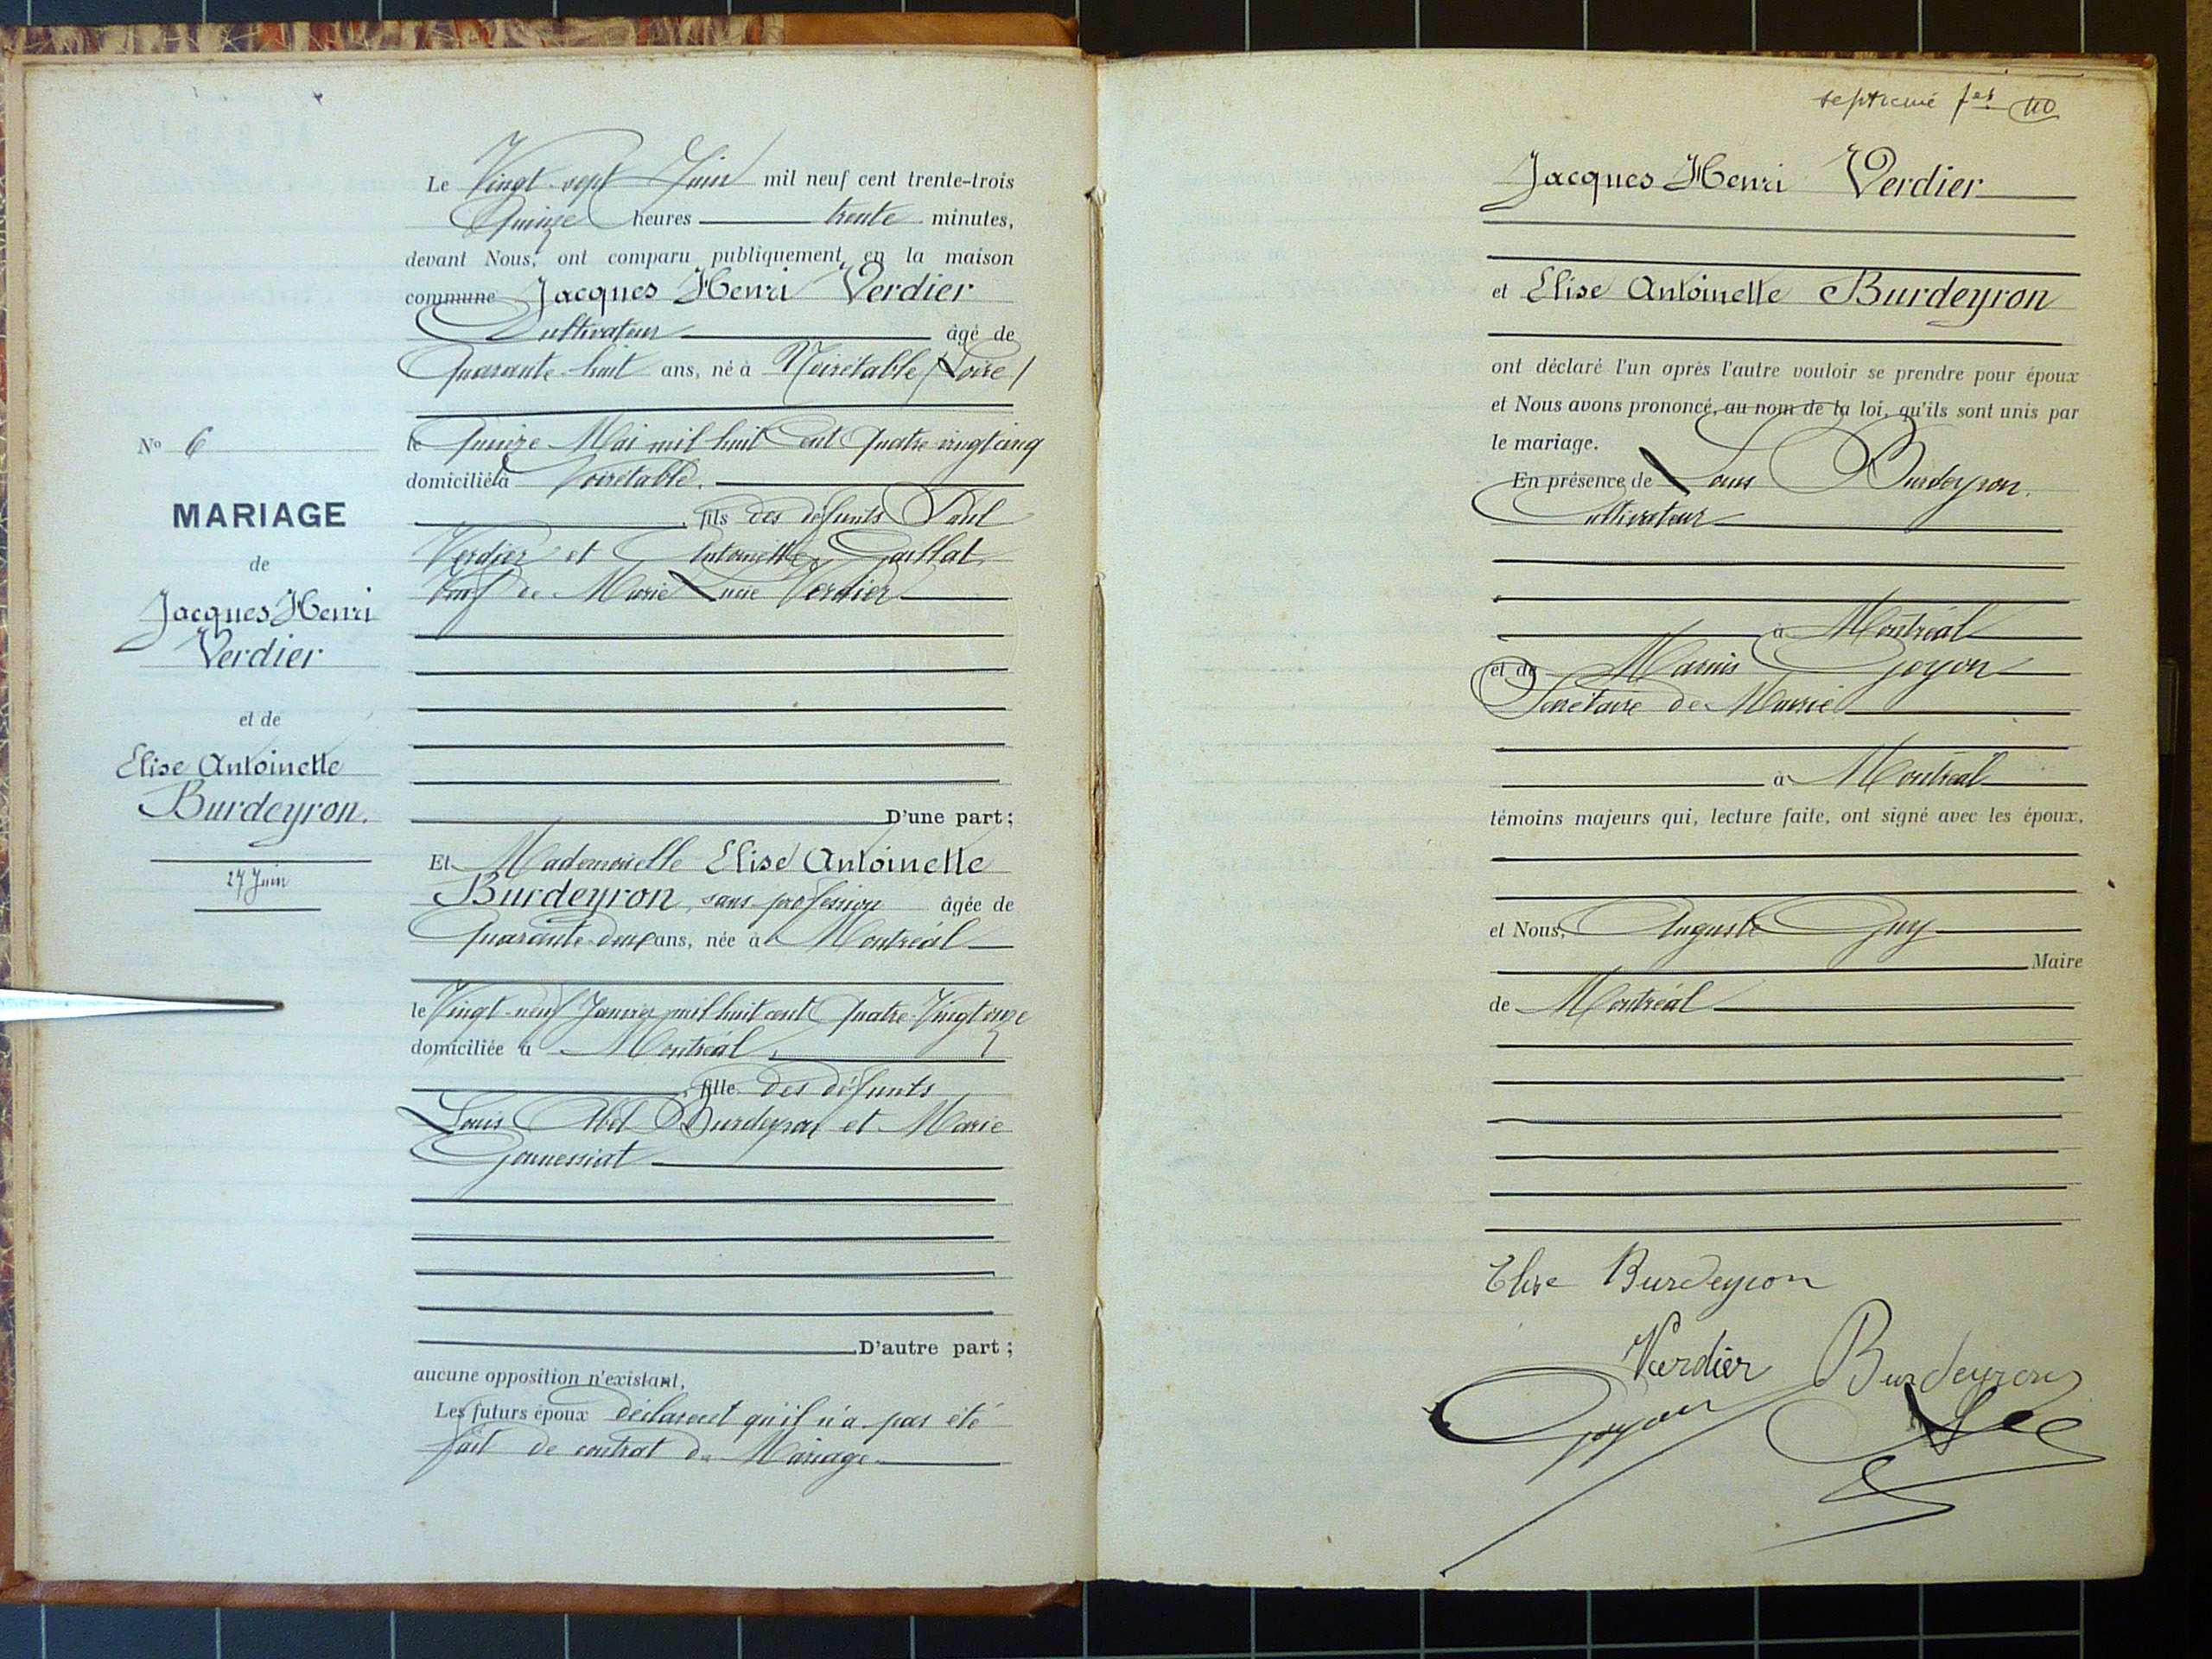 N° 6
MARIAGE
de
Jacques Henri
Verdier
et de
Elise Antoinette
Burdeyron.
27 Juin
Le Vingt-sept Juin mil neuf cent trente-trois
Quinze heures trente minutes,
devant Nous, ont comparu publiquement en la maison
commune Jacques Henri Verdier
Cultivateur âgé de
Quarante-huit ans, né à Noirétable (Loire)
le Quinze Mai mil huit cent quatre vingt cinq
domicilié à Noirétable.
, fils des défunts Paul
Verdier et Antoinette
Veuf de Marie Lucie Verdier
D'une part;
Et Mademoiselle Elise Antoinette
Burdeyron, sans profession âgée de
Quarante-deux ans, née à Montréal
le Vingt-neuf Janvier mil huit cent Quatre-Vingt onze
domiciliée à Montréal,
, fille des défunts
Louis Abel Burdeyron et Marie
Gonnessiat
D'autre part;
aucune opposition n'existant,
Les futurs époux déclarent qu'il n'a pas été
fait de contrat de Mariage.
septième 40
Jacques Henri Verdier
et Elise Antoinette Burdeyron
ont déclaré l'un après l'autre vouloir se prendre pour époux
et Nous avons prononcé, au nom de la loi, qu'ils sont unis par
le mariage.
En présence de Louis Burdeyron.
Cultivateur
à Montréal
et de Marius Goyon
Secrétaire de Mairie
à Montréal
témoins majeurs qui, lecture faite, ont signé avec les époux,
et Nous, Auguste Guy
Maire
de Montréal
Elise Burdeyron
Verdier Burdeyron
Goyon